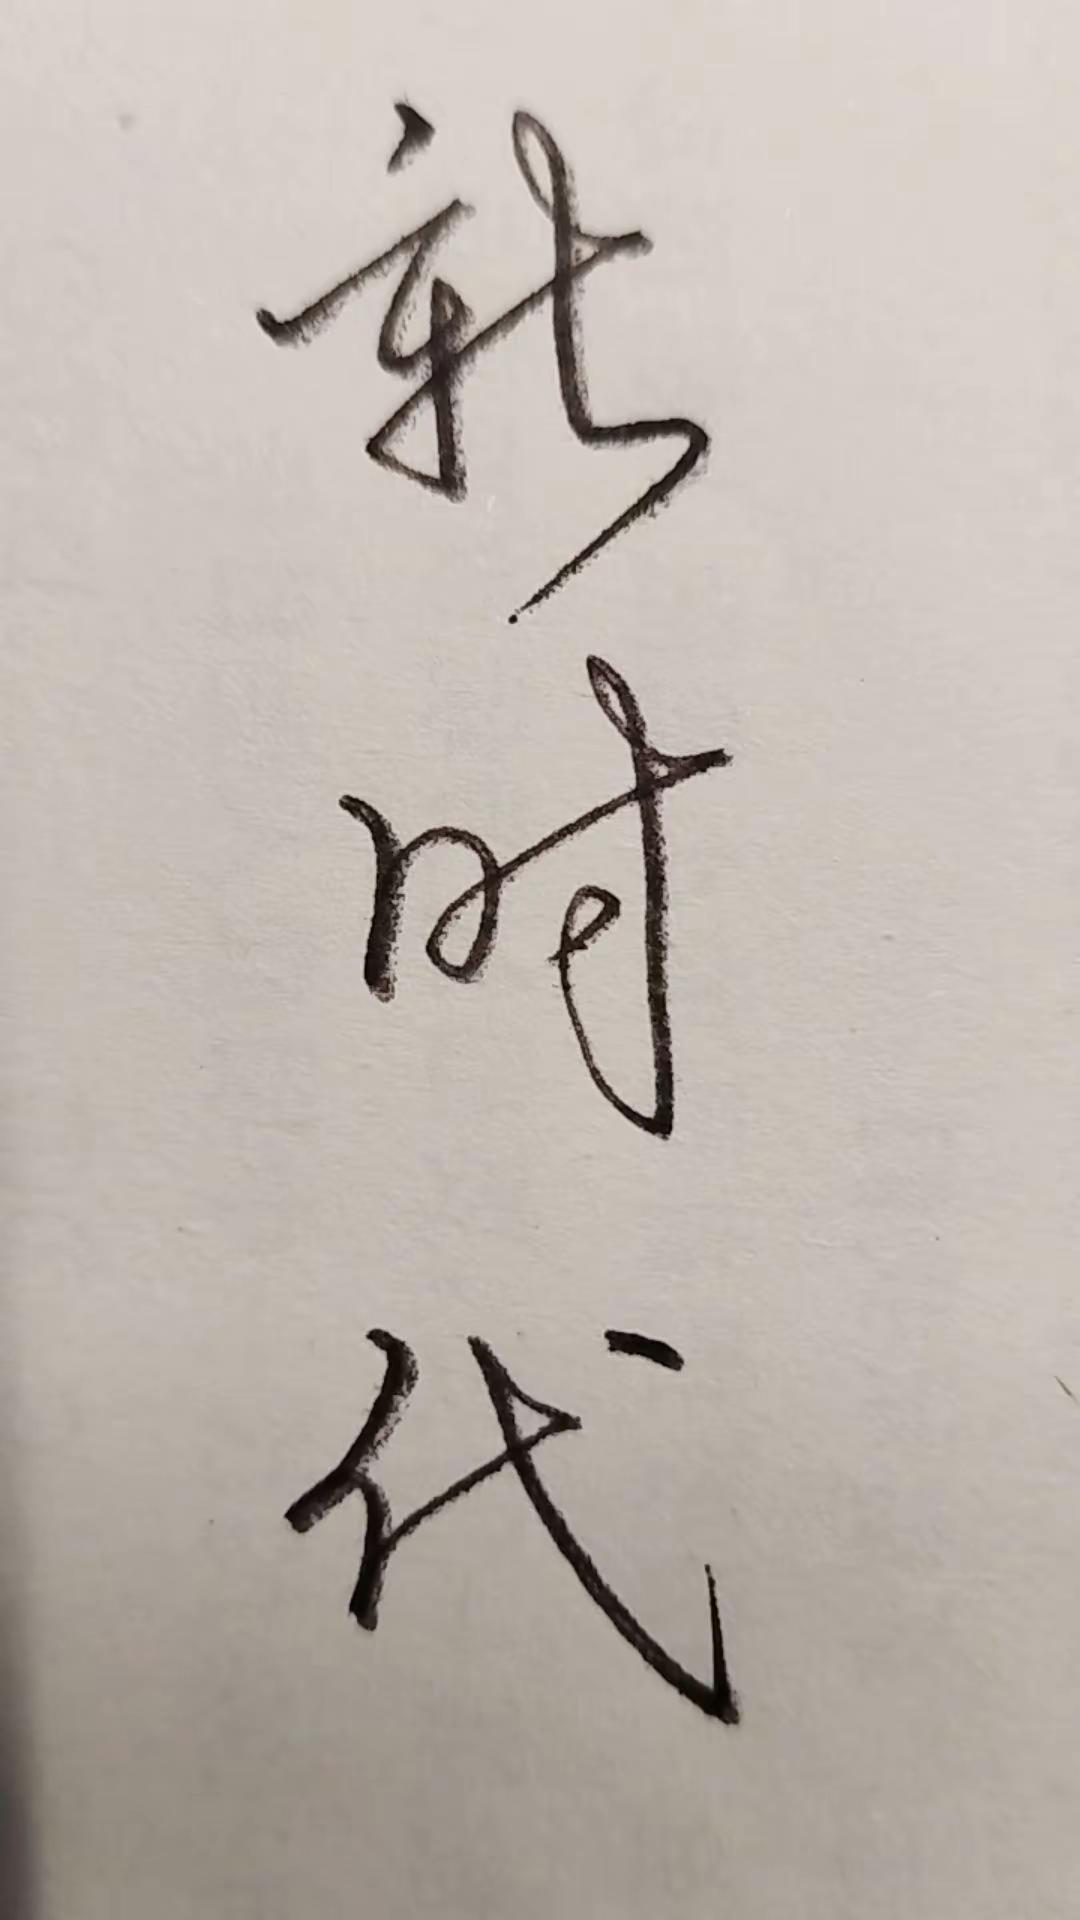 新
时
代